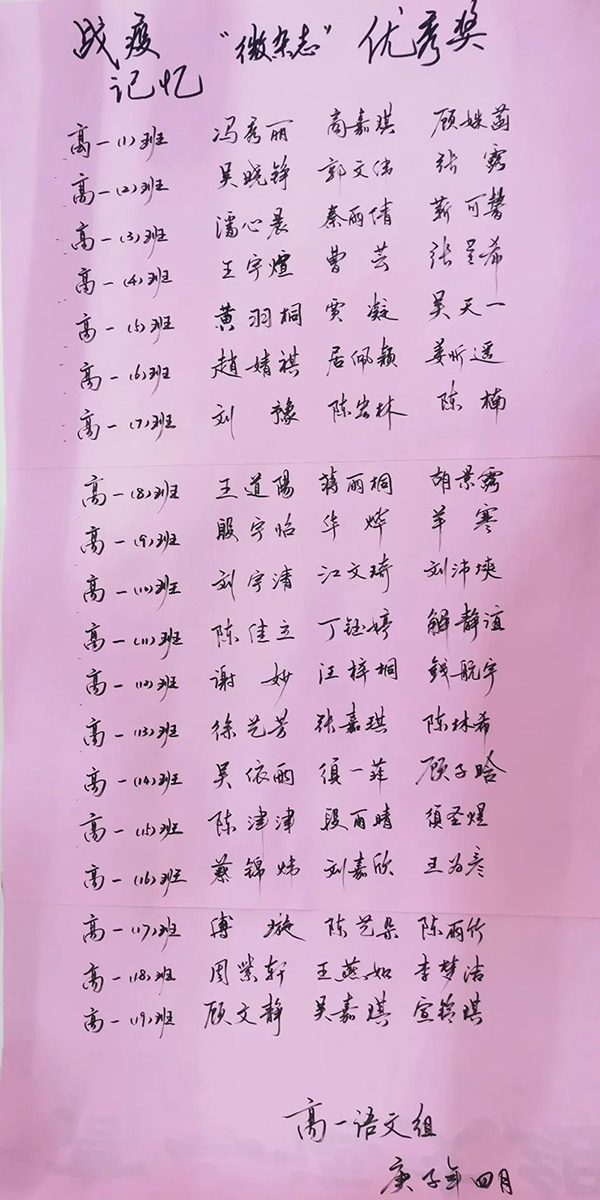 战疫 "微杂志" 优秀奖
记忆
高一(1)班 冯秀丽 高嘉琪 顾姝菡
高一(2)班 吴晓铮 郭文伟 张露
高一(3)班 潘心晨 秦丽倩 靳可馨
高一(4)班 王宇煊 曹芸 张呈希
高一(5)班 黄羽桐 贾凝 吴天一
高一(6)班 赵婧祺 居佩颖 姜昕遥
高一(7)班 刘豫 陈宏林 陈楠
高一(8)班 王道陽 蒋丽桐 胡景露
高一(9)班 殷宇怡 华烨 羊寒
高一(10)班 刘宇清 江文琦 刘沛
高一(11)班 陈佳立 丁钰婷 解静谊
高一(12)班 谢妙 汪梓桐 钱航宇
高一(13)班 徐艺芳 张嘉琪 陈林希
高一(14)班 吴依 须一菲 顾子晗
高一(15)班 陈津津 段雨晴 须圣煜
高一(16)班 蔡锦炜 刘嘉欣 王为彦
高一(17)班 傅璇 陈艺朵 陈雨竹
高一(18)班 周紫轩 王燕如 李梦洁
高一(19)班 顾文静 吴嘉琪 宣铃琪
高一语文组
庚子年四月